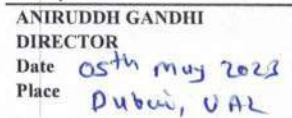 ANIRUDDH GANDHI
DIRECTOR
Date 05th May 2023
Place Dubai, UAE